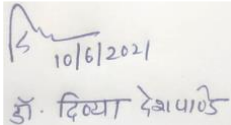 10/6/2021
डॉ. दिव्या देशपांडे